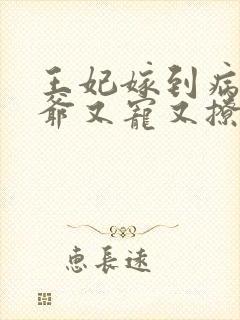 王妃嫁到病
爺又寵又撩
恵長遠